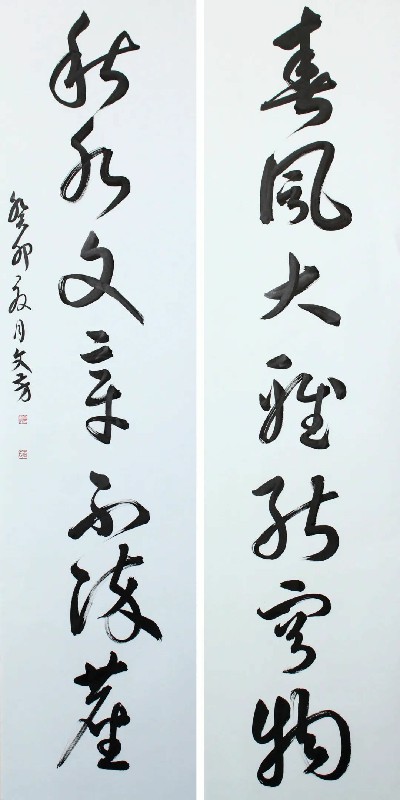 春風大雅能容物
秋水文章不染塵
癸卯夏月文芳